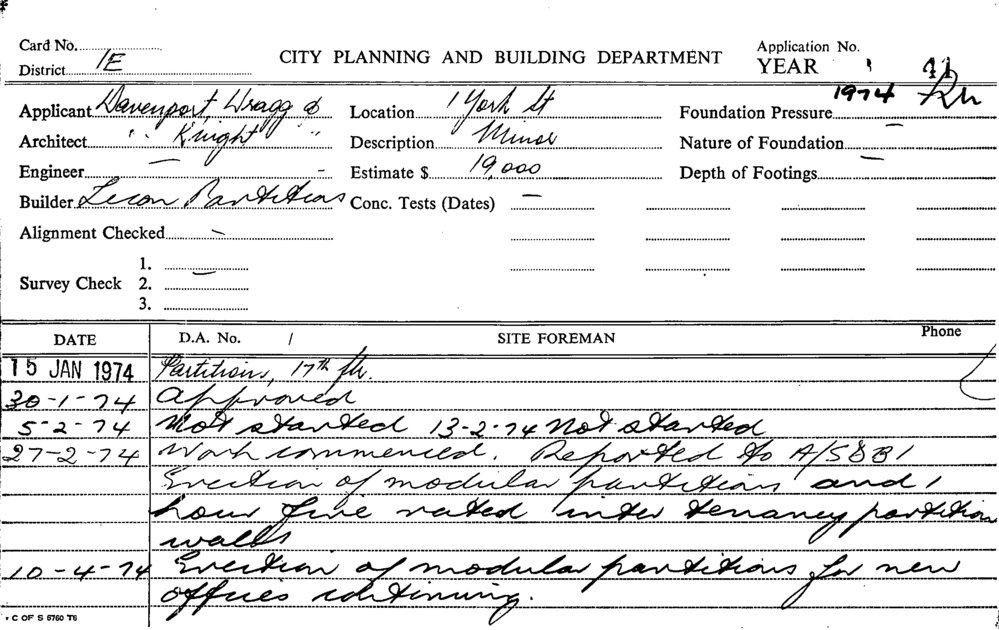 Card No.
District 1E
CITY PLANNING AND BUILDING DEPARTMENT
Application No.
YEAR 41
1974
Applicant Davenport, Wragg &
Architect " Knight "
Engineer —
Builder Lecon Partitions
Alignment Checked —
Survey Check
1.
2.
3.
Location 1 York St
Description Minor
Estimate $ 19,000
Conc. Tests (Dates) —
Foundation Pressure
Nature of Foundation —
Depth of Footings —
DATE D.A. No. / SITE FOREMAN Phone
15 JAN 1974 Partitions, 17th flr.
30-1-74 Approved
5-2-74 Not started 13-2-74 Not started
27-2-74 Work commenced. Reported to A/SBBI
Erection of modular partitions and 1
hour fire rated inter tenancy partition
walls
10-4-74 Erection of modular partitions for new
offices continuing.
C OF S 5760 T6